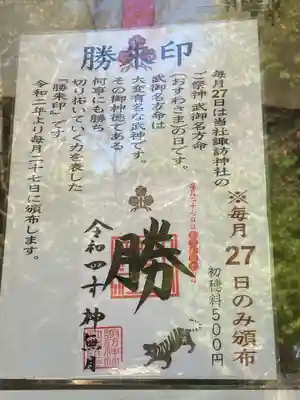 勝朱印
毎月27日は当社諏訪神社の
ご祭神 武御名方命
「おすわさま」の日です。
武御名方命は
大変有名な武神です。
その御神徳である
何事にも勝ち
切り拓いていく力を表した
『勝朱印』です。
令和二年より毎月二十七日に頒布します。
※毎月27日のみ頒布
初穂料500円
勝
令和四年 神無月